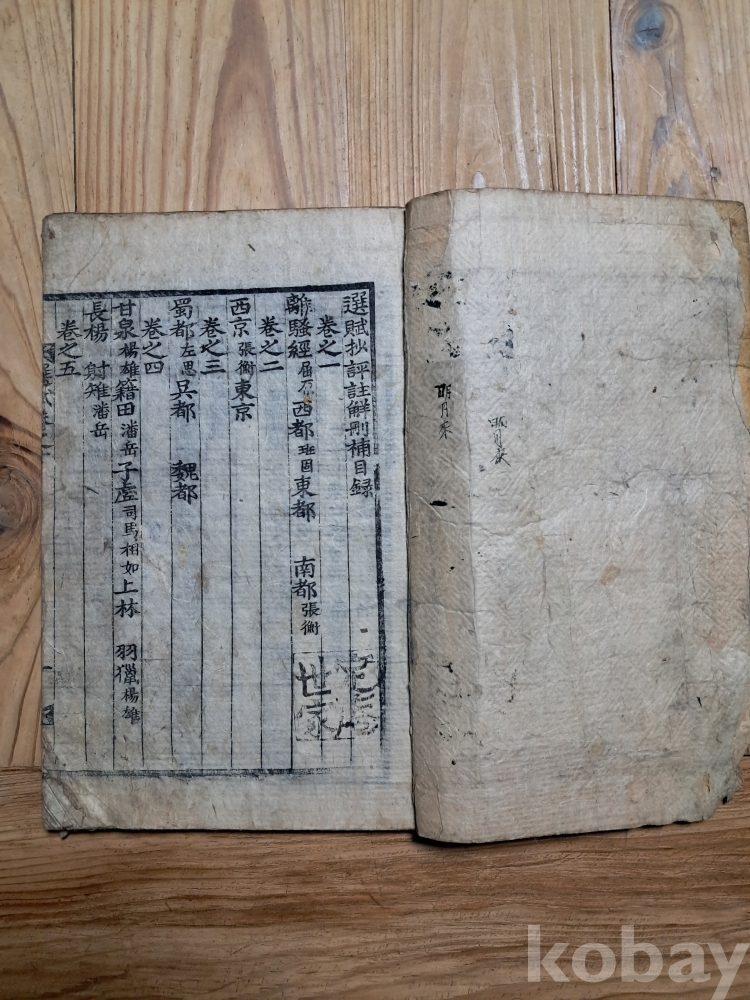 選賦抄評註解刪補目録
卷之一
離騷經 屈原 西都 班固 東都 南都 張衡
卷之二
西京 張衡 東京
卷之三
蜀都 左思 吳都 魏都
卷之四
甘泉 楊雄 籍田 潘岳 子虛 司馬相如 上林 羽獵 楊雄
長楊 射雉 潘岳
卷之五
世家
明月
kobay